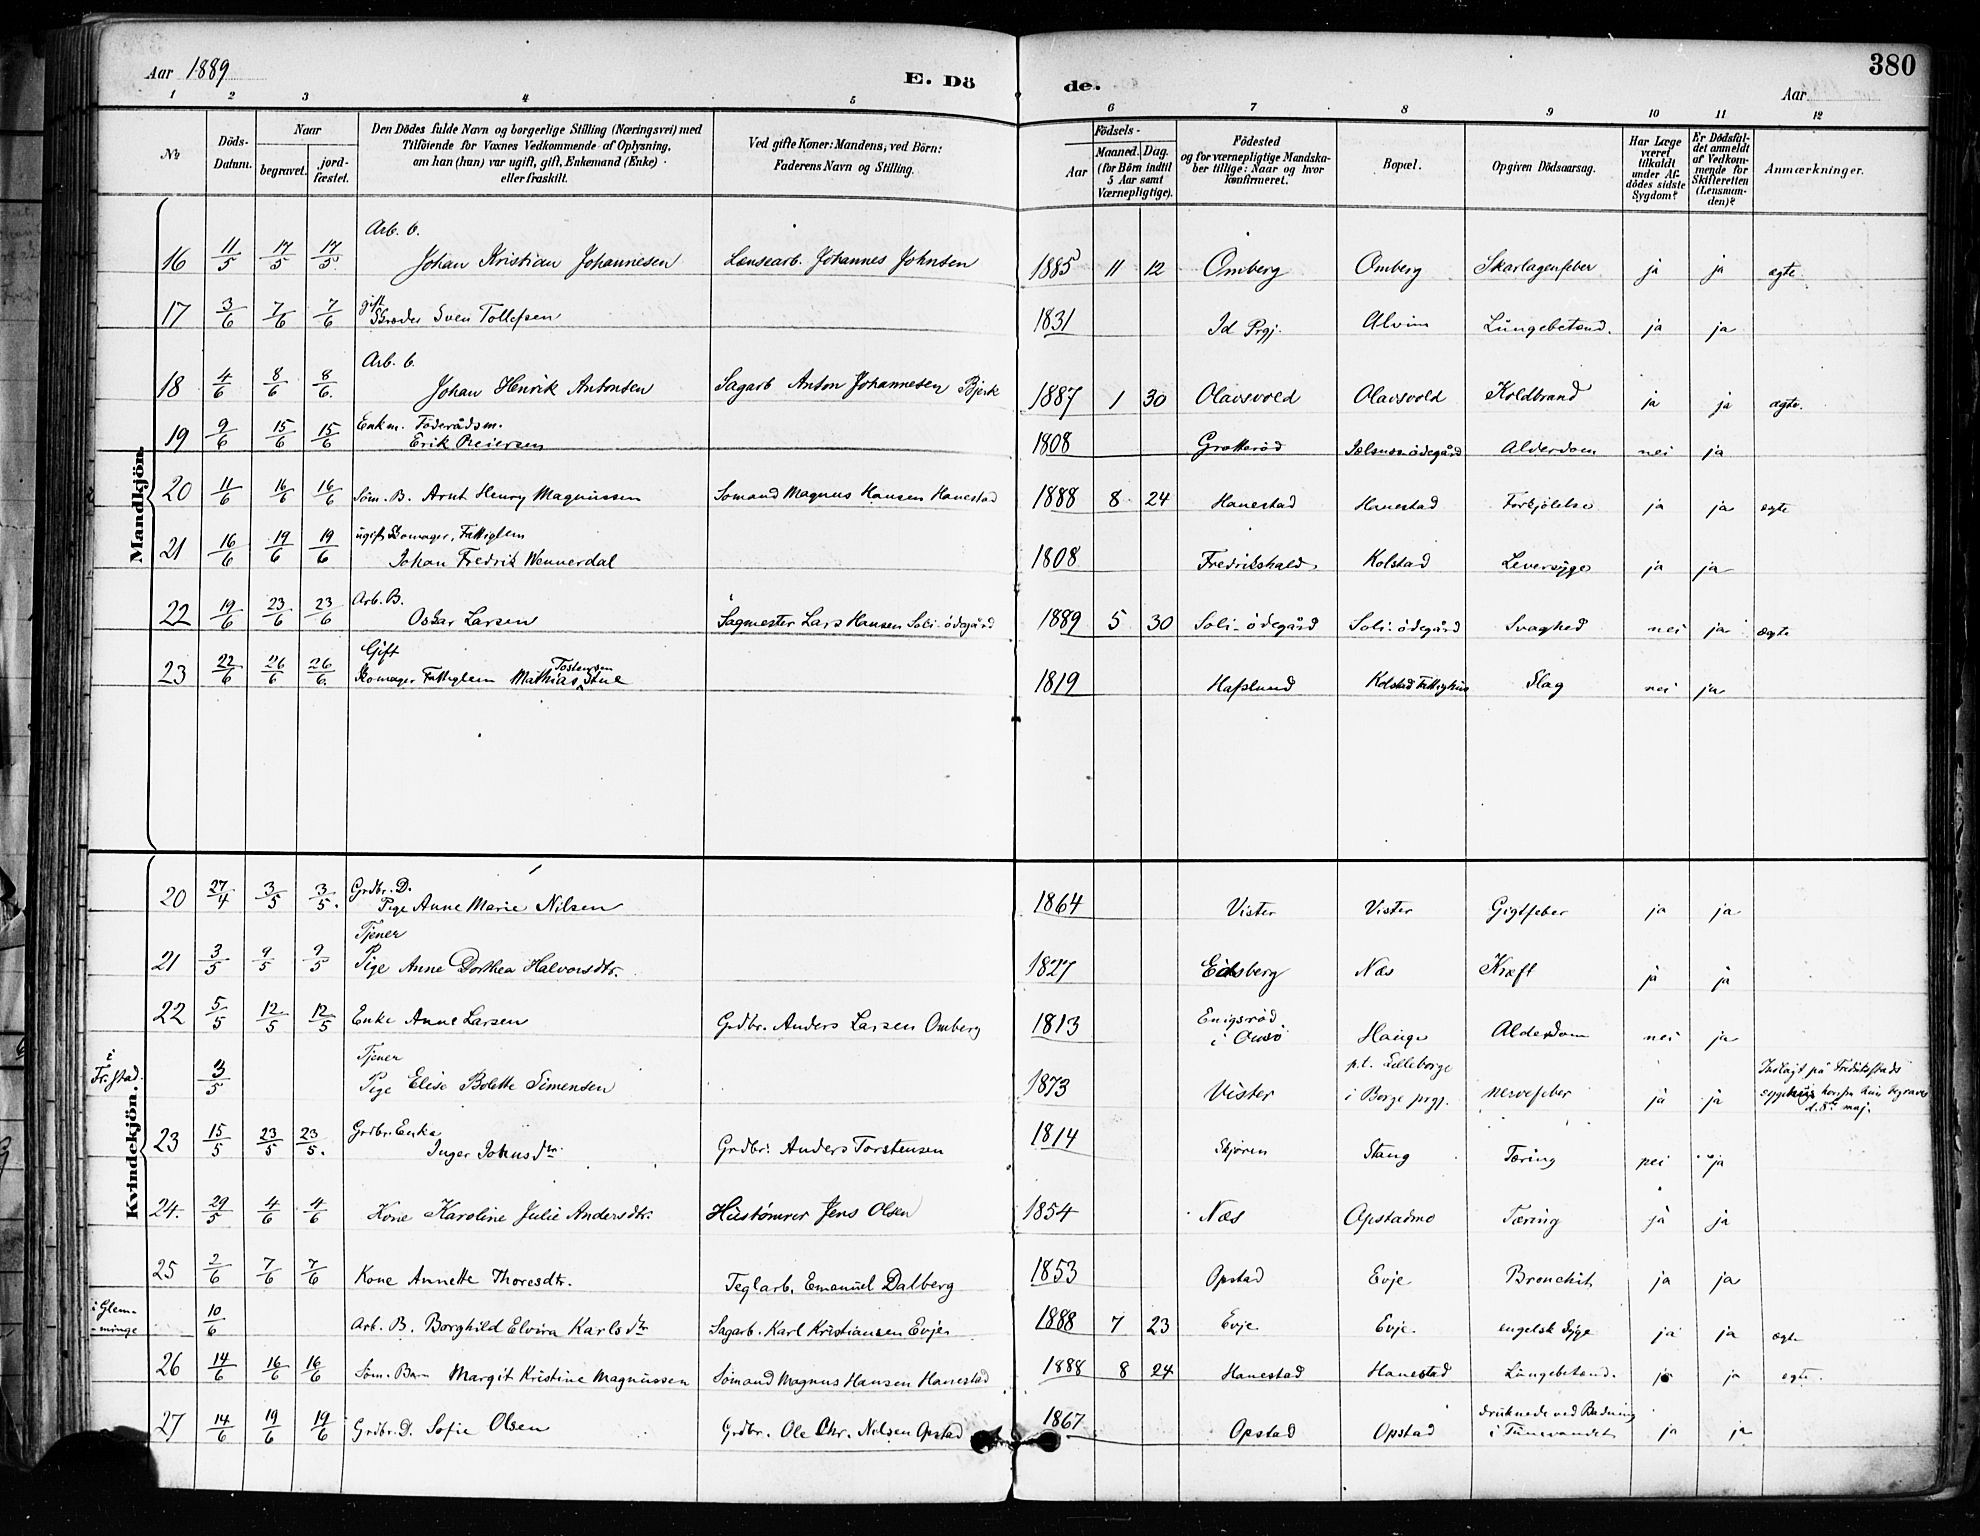 Aar 1889
E. Dö
de.
Aar
380
1 2 3 4 5 6 7 8 9 10 11 12
No
Döds-Datum.
Naar
begravet.
jord-fæstet.
Den Dödes fulde Navn og borgerlige Stilling (Næringsvei) med
Tilföiende for Voxnes Vedkommende af Oplysning,
om han (hun) var ugift, gift, Enkemand (Enke)
eller fraskilt.
Ved gifte Koner: Mandens, ved Börn:
Faderens Navn og Stilling.
Födsels-
Aar
Maaned. Dag.
(for Börn indtil
5 Aar samt
Værnepligtige).
Födested
og for værnepligtige Mandska-
ber tillige: Naar og hvor
konfirmeret.
Bopæl.
Opgiven Dödsaarsag.
Har Læge
været
tilkaldt
under Af-
dödes sidste
Sygdom?
Er Dödsfal-
det anmeldt
af Vedkom-
mende for
Skifteretten
(Lensman-
den)?
Anmærkninger.
Mandkjön.
16 11/5 17/5 17/5 Arb. b.
Johan Kristian Johannesen Lænsearb. Johannes Johnsen 1885 11 12 Omberg Omberg Skarlagensfeber ja ja ægte
17 3/6 7/6 7/6 gift
Skræder Sven Tollefsen 1831 Id Prgj. Alvim Lungebetænd. ja ja
18 4/6 8/6 8/6. Arb. b.
Johan Henrik Antonsen Sagarb Anton Johannesen Bjerk 1887 1 30 Olavsvold Olavsvold Koldbrand ja ja ægte.
19 9/6 15/6 15/6 Enkm. Föderådsm.
Erik Reiersen 1808 Grotteröd ödegård Alderdom nei ja
20 11/6 16/6 16/6 Söm. B. Arnt Henry Magnussen Sömand Magnus Hansen Hanestad 1888 8 24 Hanestad Hanestad Forkjölelse ja ja ægte
21 16/6 19/6 19/6 ugift Skomager, Fattiglem
Johan Fredrik Wennerdal 1808 Fredrikshald Kolstad Leversyge ja ja
22 19/6 23/6 23/6 Arb. B.
Oskar Larsen Sagmester Lars Hansen Soli-ödegård 1889 5 30 Soli-ödegård Soli-ödegård Svaghed nei ja ægte
23 22/6 26/6 26/6. Gift
Skomager Fattiglem Mathias Tostensen Stue 1819 Hafslund Kolstad Fattighus Slag nei ja
Kvindekjön.
20 27/4 3/5 3/5. Grdbr. D.
Pige Anne Marie Nilsen 1864 Vister Vister Gigtfeber ja ja
21 3/5 9/5 9/5 Tjener
Pige Anne Dorthea Halvorsdtr. 1827 Eidsberg Næs Kræft ja ja
22 5/5 12/5 12/5 Enke Anne Larsen Grdbr. Anders Larsen Omberg 1813 Enigsröd
i Onsö Hauge Alderdom nei ja
i
Fr.stad. 3/5 Tjener
Pige Elise Bolette Simensen 1873 Vister p.t. Lilleborge
i Borge prgj. Nervefeber ja ja Indlagt på Fredrikstads
sygehus hvorfra hun begraves
d. 8de maj.
23 15/5 23/5 23/5. Grdbr. Enke
Inger Johnsdtr. Grdbr. Anders Torstensen 1814 Skjören Stang Tæring nei ja
24. 29/5 4/6 4/6 Kone Karoline Julie Andersdtr. Hustömrer Jens Olsen 1854 Næs Opstadmo Tæring ja ja
25 2/6 7/6 7/6 Kone Annette Thoresdtr. Teglarb. Emanuel Dalberg 1853 Opstad Evje Bronchit ja ja
i Glem-
-minge 10/6 Arb. B. Borghild Elvira Karlsdtr Sagarb. Karl Kristiansen Evje 1888 7 23 Evje Evje engelsk Syge ja ja ægte
26 14/6 16/6 16/6 Söm. Barn Margit Kristine Magnussen Sömand Magnus Hansen Hanestad 1888 8 24 Hanestad Hanestad Lungebetænd. ja ja ægte.
27 14/6 19/6 19/6 Grdbr. D. Sofie Olsen Grdbr. Ole Chr. Nilsen Opstad 1867 Opstad Opstad druknede ved Badning
i Tunevandet ja ja